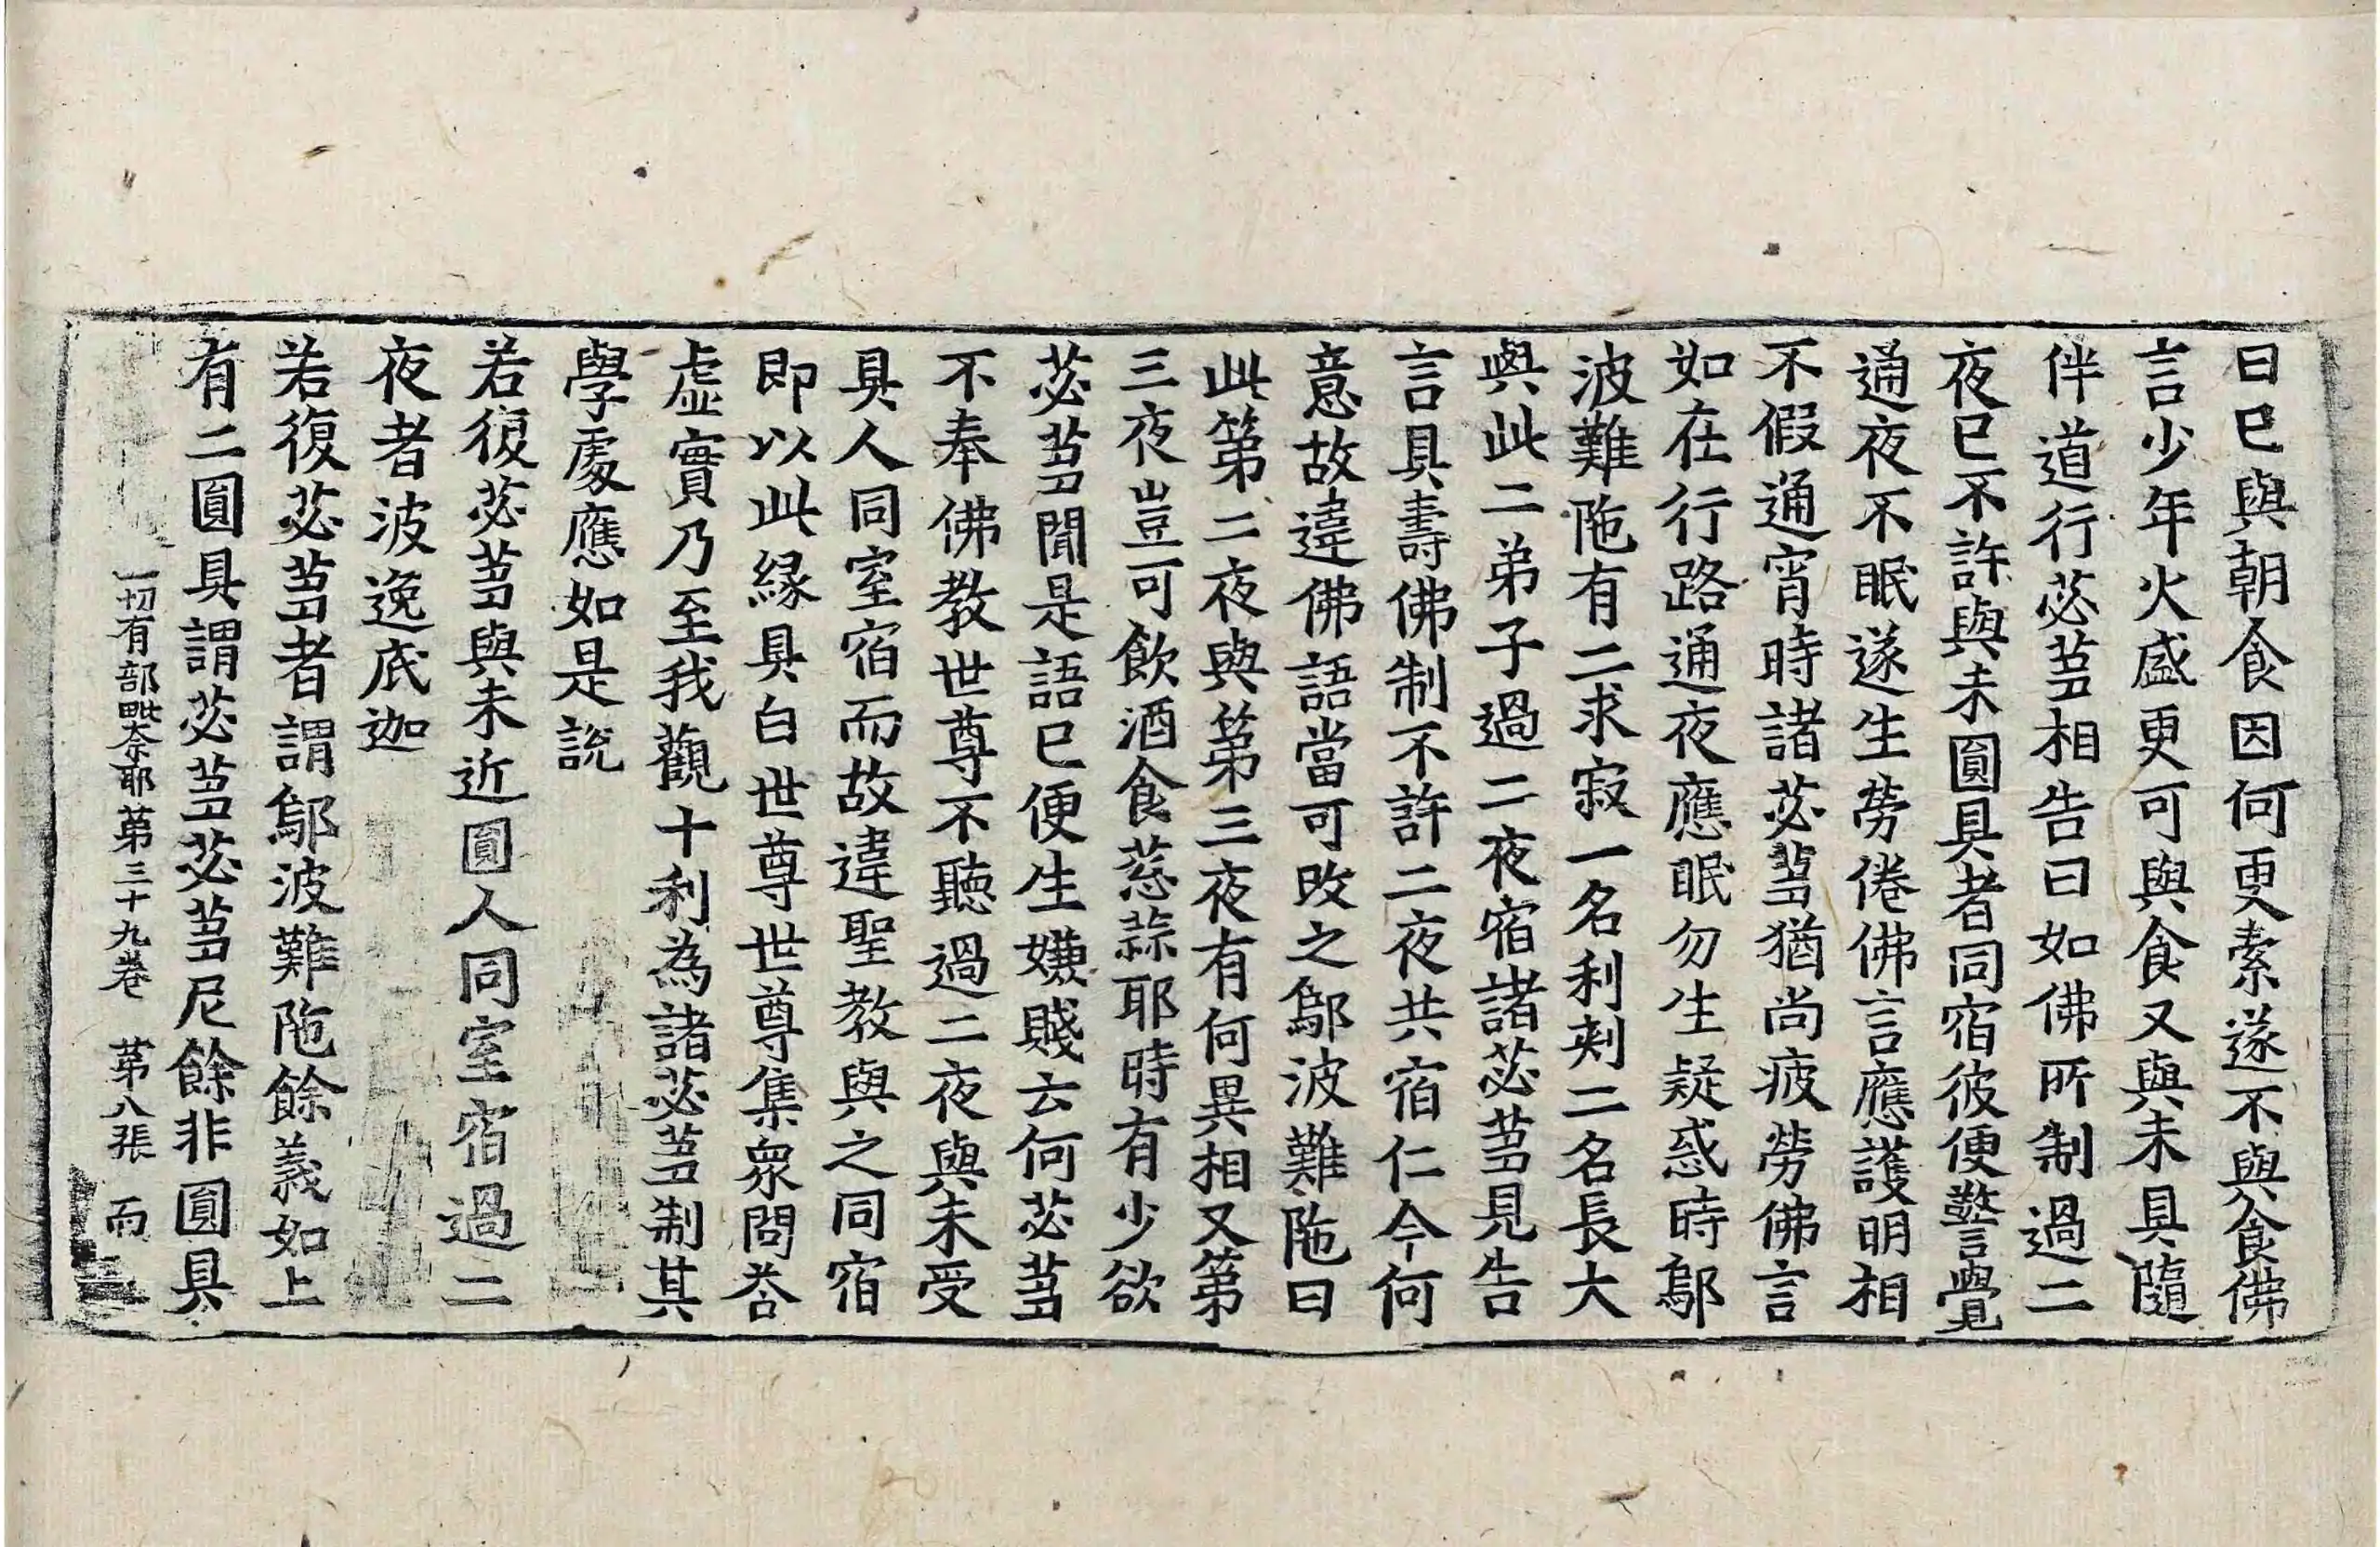 曰已與朝食因何更索遂不與食佛
言少年火盛更可與食又與未具隨
伴道行苾芻相告曰如佛所制過二
夜已不許與未圓具者同宿彼便警覺
通夜不眠遂生勞倦佛言應護明相
不假通宵時諸苾芻猶尚疲勞佛言
如在行路通夜應眠勿生疑惑時鄔
波難陁有二求寂一名利刾二名長大
與此二弟子過二夜宿諸苾芻見告
言具壽佛制不許二夜共宿仁今何
意故違佛語當可改之鄔波難陁曰
此第二夜與第三夜有何異相又第
三夜豈可飲酒食葱蒜耶時有少欲
苾芻聞是語已便生嫌賤云何苾芻
不奉佛教世尊不聽過二夜與未受
具人同室宿而故違聖教與之同宿
即以此緣具白世尊世尊集衆問荅
虛實乃至我觀十利為諸苾芻制其
學處應如是說
若復苾芻與未近圓人同室宿過二
夜者波逸底迦
若復苾芻者謂鄔波難陁餘義如上
有二圓具謂苾芻苾芻尼餘非圓具
一切有部毗奈耶第三十九卷　第八張　而